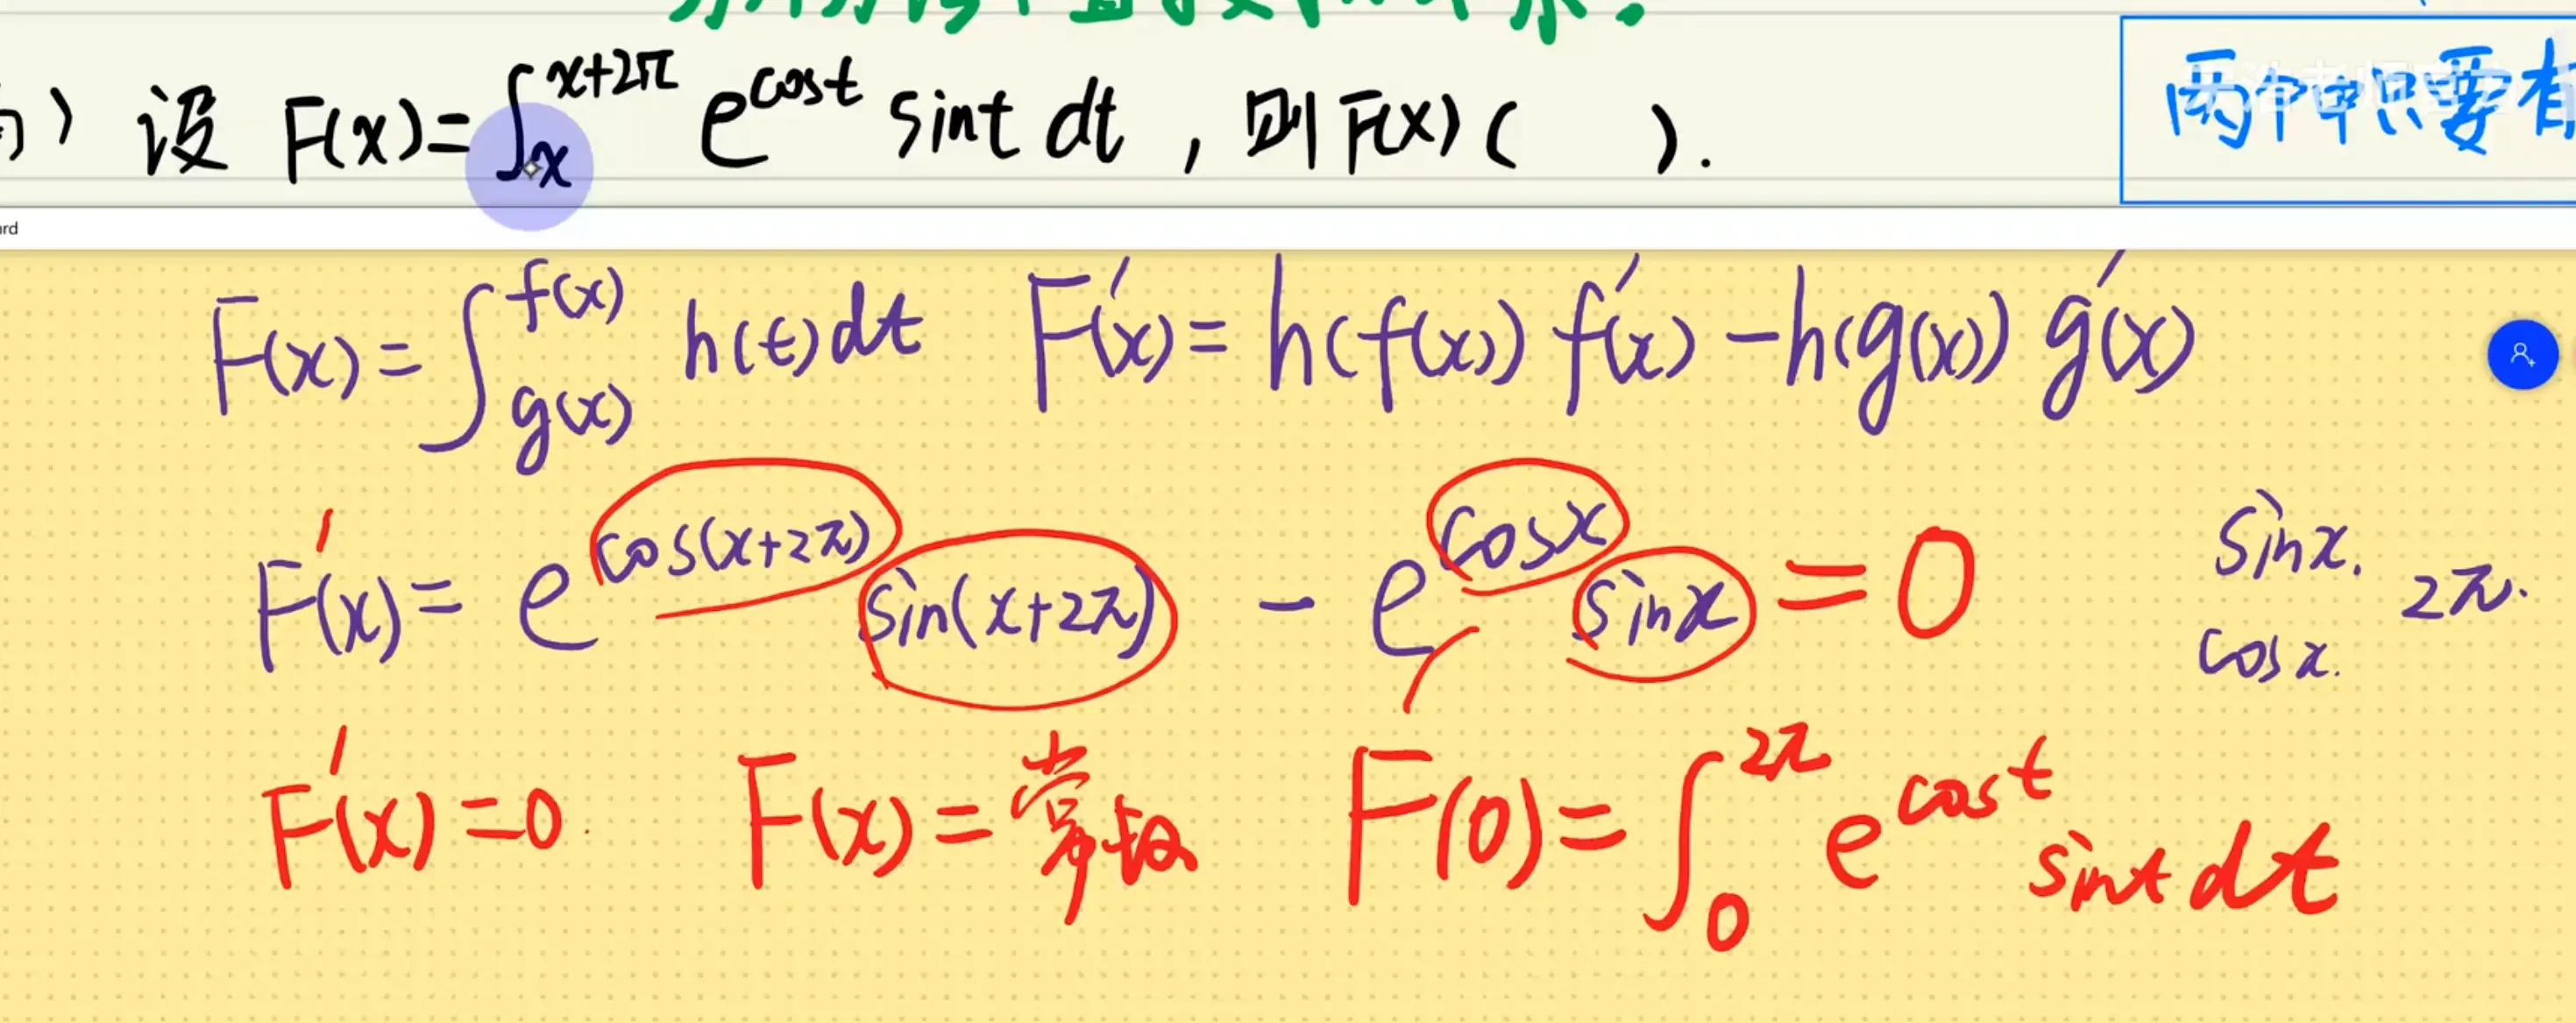 ) 设 F(x)=∫_x^{x+2π} e^{cost} sint dt , 则 F(x) ( ).
两个中只要有
rd
F(x)=∫_{g(x)}^{f(x)} h(t)dt F'(x)=h(f(x))f'(x)-h(g(x))g'(x)
F'(x)=e^{cos(x+2π)} sin(x+2π) - e^{cosx} sinx = 0
sinx. 2π.
cosx.
F'(x)=0. F(x)=常数 F(0)=∫_0^{2π} e^{cost} sint dt